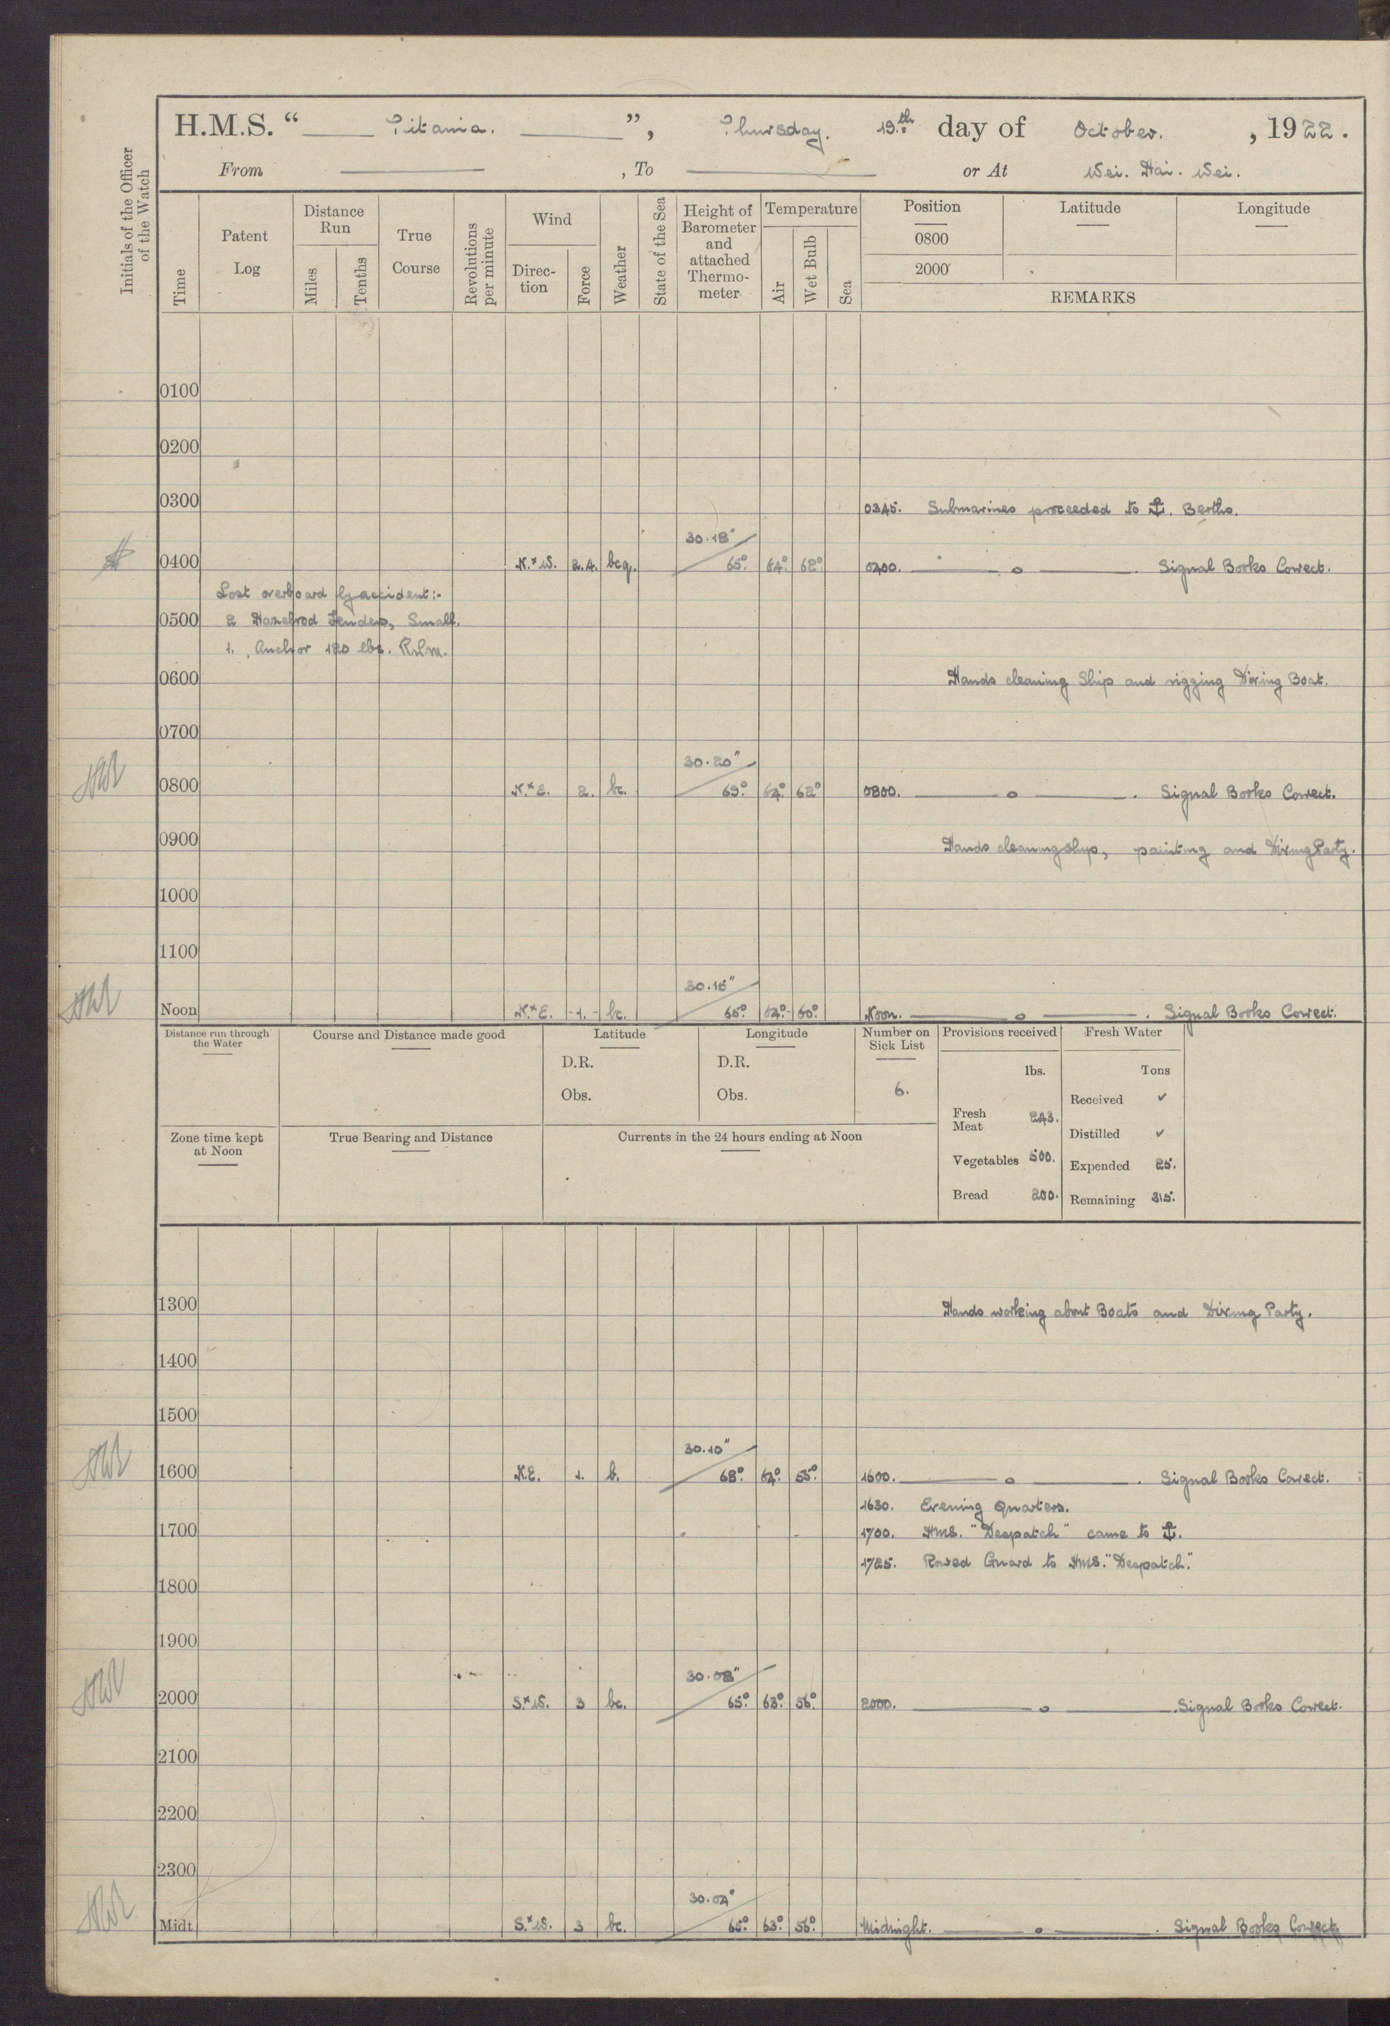 H.M.S. “ Titania. ”, Thursday. 19th day of October. , 1922.
From , To or At Wei. Hai. Wei.
Initials of the Officer of the Watch
Time
Patent Log
Distance Run
Miles
Tenths
True Course
Revolutions per minute
Wind
Direction
Force
Weather
State of the Sea
Height of Barometer and attached Thermometer
Temperature
Air
Wet Bulb
Sea
Position
Latitude
Longitude
0800
2000
REMARKS
0100
0200
0300
0345. Submarines proceeded to ⚓. Berths.
30.18"
0400 N.×W. 2.4. bcq. 65° 64° 62° 0400. o . Signal Books Correct.
Lost overboard by accident:-
0500 2 Hazelrod Fenders, Small.
1. Anchor 120 lbs.
0600 Hands cleaning Ship and rigging Diving Boat.
0700
30.20"
0800 N.×E. 2. bc. 69° 64° 62° 0800. o . Signal Books Correct.
0900 Hands cleaning ship, painting and Diving Party.
1000
1100
30.16"
Noon N.×E. 1. bc. 66° 62° 60° Noon. o . Signal Books Correct.
Distance run through the Water
Course and Distance made good
Latitude
D.R.
Obs.
Longitude
D.R.
Obs.
Number on Sick List
6.
Provisions received
lbs.
Fresh Meat 243.
Vegetables 500.
Bread 200.
Fresh Water
Tons
Received ✓
Distilled ✓
Expended 25.
Remaining 315.
Zone time kept at Noon
True Bearing and Distance
Currents in the 24 hours ending at Noon
1300 Hands working about Boats and Diving Party.
1400
1500
30.10"
1600 N.E. 1. b. 68° 64° 55° 1600. o . Signal Books Correct.
1630. Evening Quarters.
1700 1700. HMS. "Despatch" came to ⚓.
1725. Rowed Guard to HMS. "Despatch".
1800
1900
30.08"
2000 S.×W. 3 bc. 65° 63° 56° 2000. o . Signal Books Correct.
2100
2200
2300
30.04"
Midt. S.×W. 3 bc. 65° 63° 56° Midnight. o . Signal Books Correct.